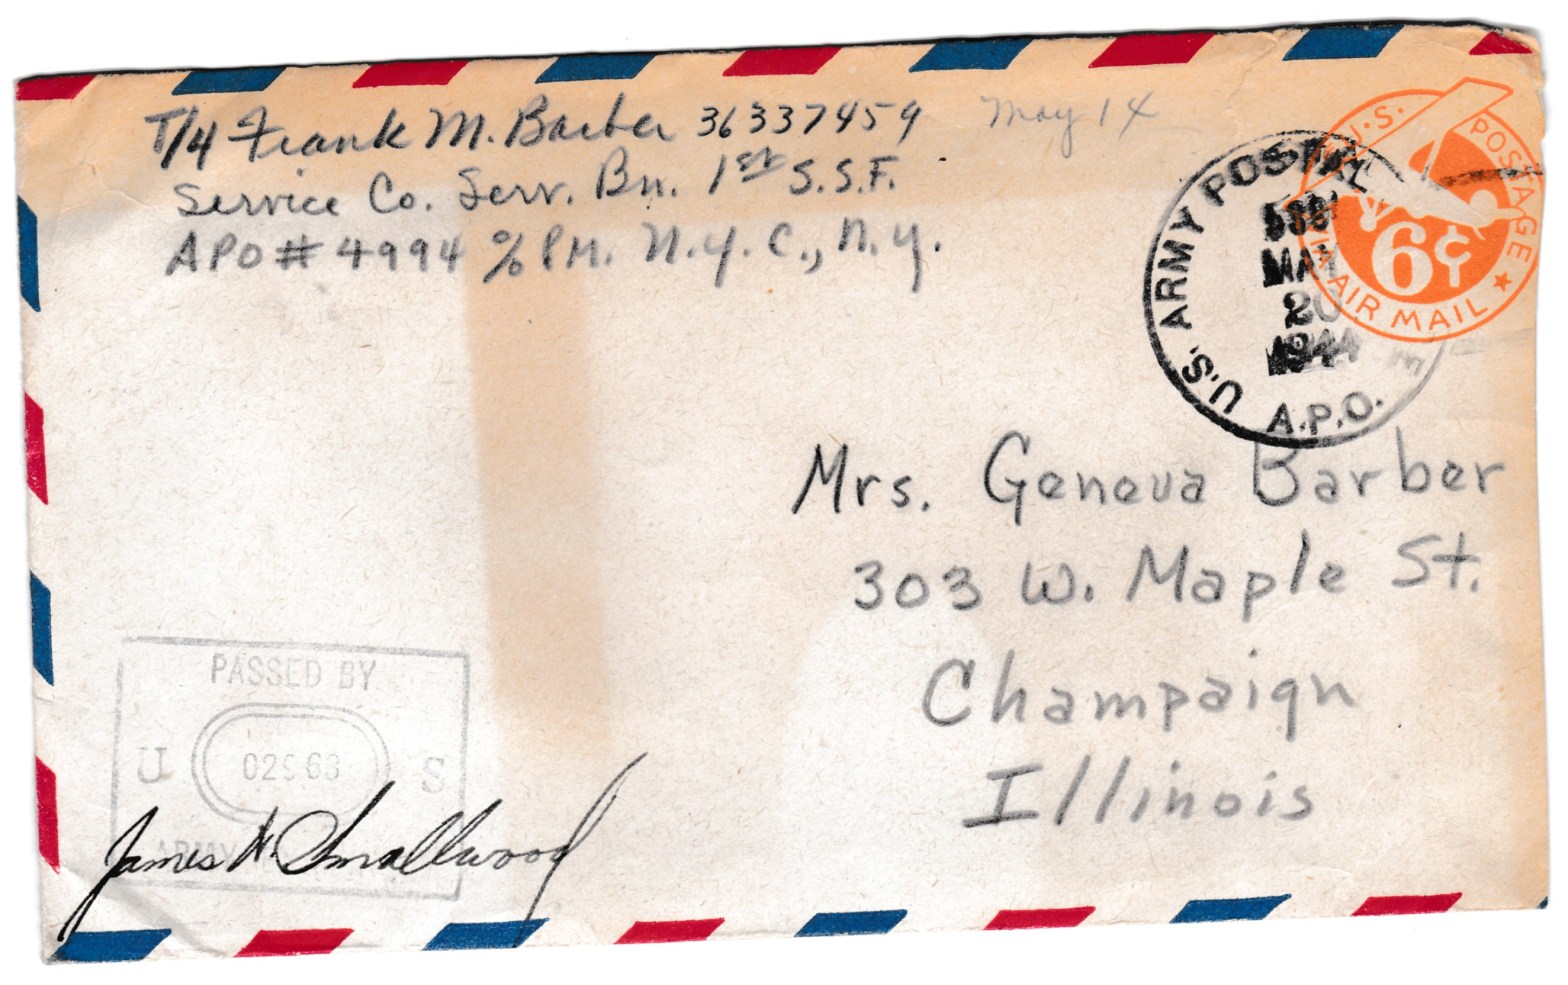 T/4 Frank M. Barber 36337459 May 14
Service Co. Serv. Bn. 1st S.S.F.
APO # 4994 % P.M. N.Y.C., N.Y.
U.S. POSTAGE
VIA AIR MAIL
6¢
U.S. ARMY POSTAL
MAY
20
1944
A.P.O.
Mrs. Geneva Barber
303 W. Maple St.
Champaign
Illinois
PASSED BY
U S
ARMY
James H. Smallwood